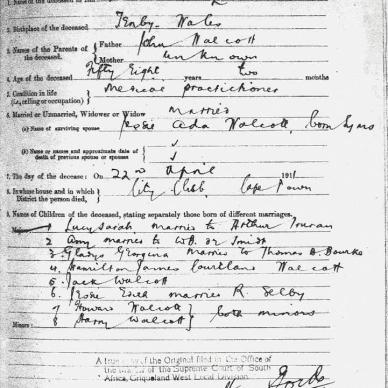 2. Birthplace of the deceased Tenby. Wales
3. Names of the Parents of the deceased. Father John Walcott
Mother unknown
4. Age of the deceased Fifty Eight years two months
5. Condition in life (i.e., calling or occupation) medical practitioner
6. Married or Unmarried, Widower or Widow married
(a) Name of surviving spouse Jessie Ada Walcott, born
(b) Name or names and approximate date of death of previous spouse or spouses
7. The day of the decease: On 22nd April 191
8. In whose house and in which District the person died, City Club, Cape Town
9. Names of Children of the deceased, stating separately those born of different marriages.
1 Lucy Sarah married to Arthur
2 Amy married to W.
3. Gladys Georgina married to Thomas A. Bourke
4. Hamilton James Courtland Walcott
5. Jack Walcott
6. Jessie married R. Selby
7 Howard Walcott } both minors
Minors: 8 Harry Walcott }
A true copy of the Original filed in the Office of
the Master of the Supreme Court of South
Africa, Griqualand West Local Division.